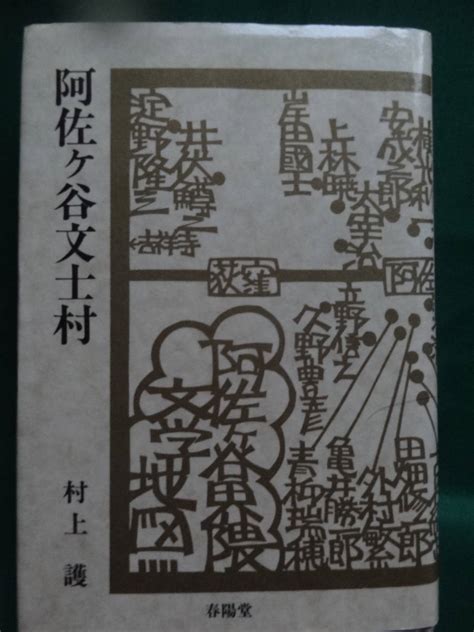 阿佐ヶ谷文士村
村上 護
横光利一
安成二郎
太宰治
上林暁
岸田國士
井伏鱒之
淀野隆三
吉祥寺
阿佐
荻窪
立野信之
久野豊彦
田畑修一郎
外村繁
亀井勝一郎
青柳瑞穂
阿佐ヶ谷界隈
文学地図
春陽堂